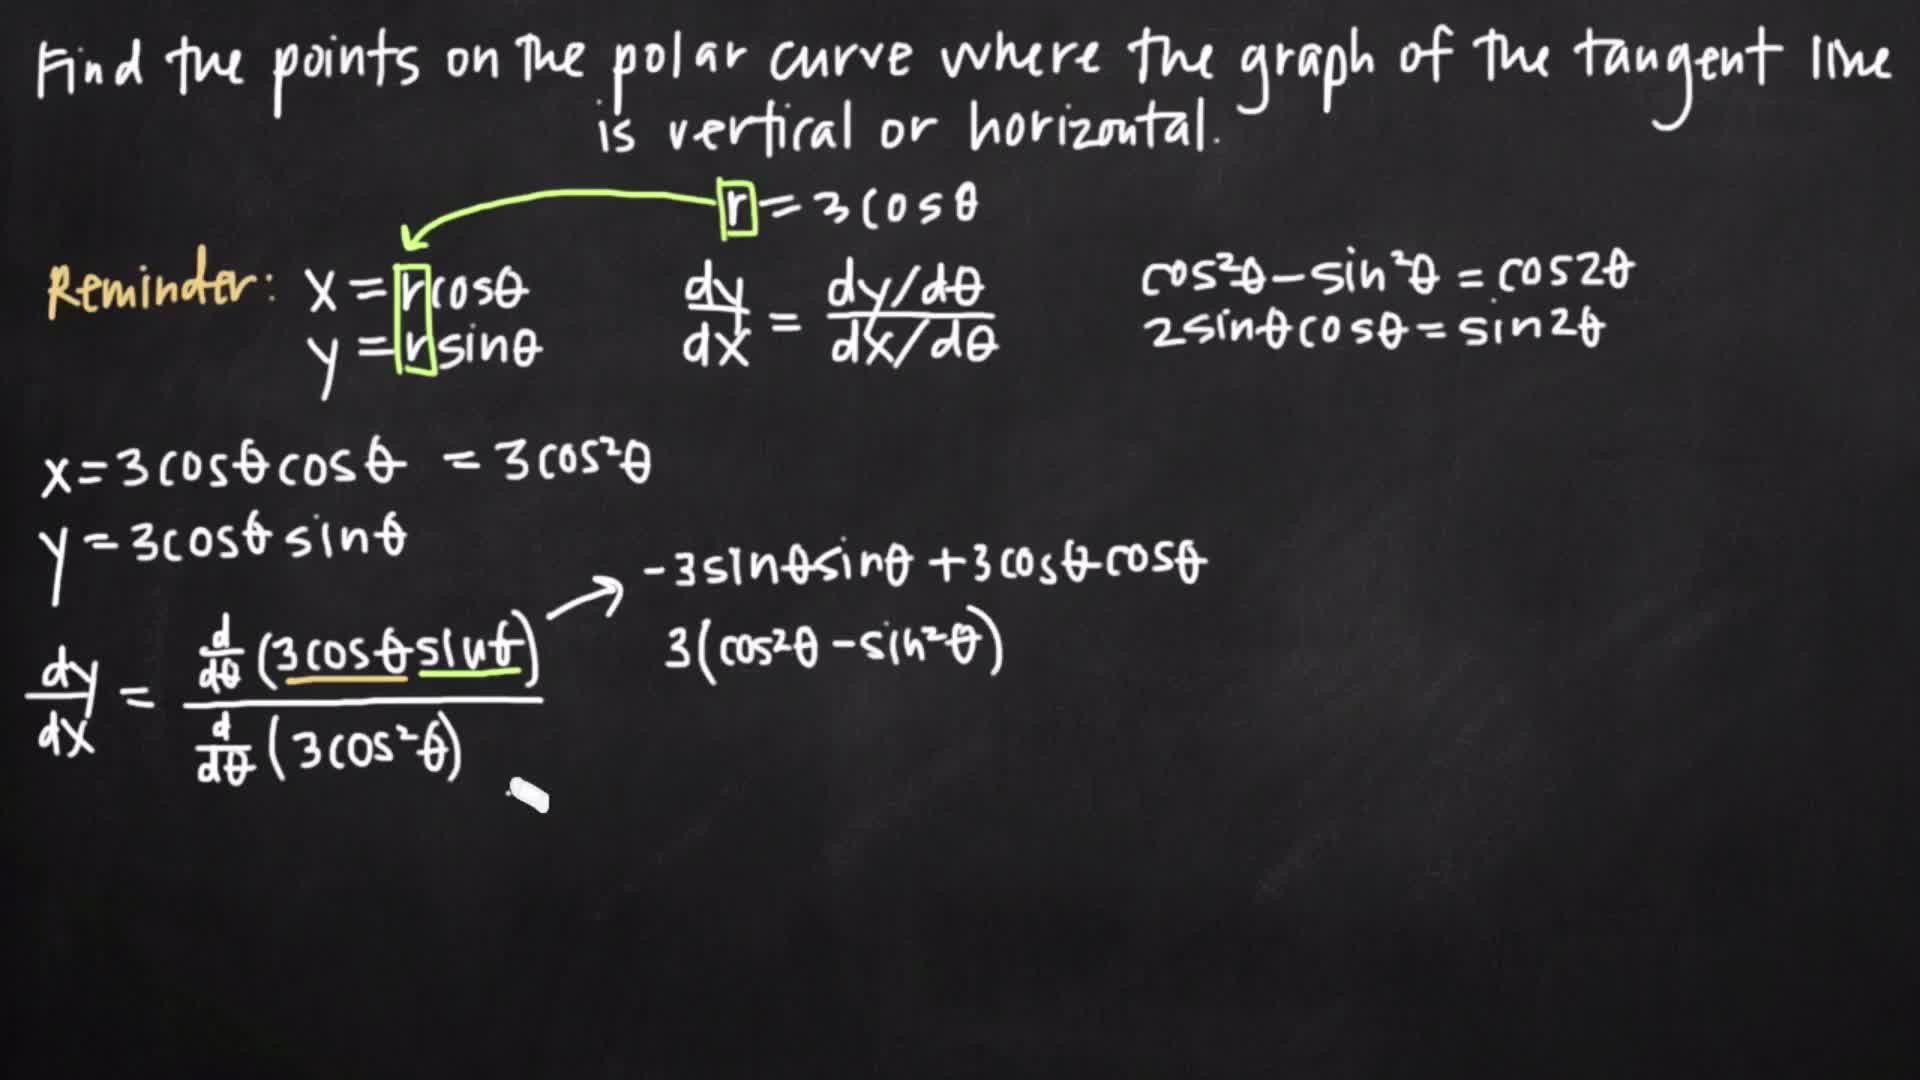 Find the points on the polar curve where the graph of the tangent line
is vertical or horizontal.
r = 3cosθ
Reminder: x = rcosθ
y = rsinθ
dy/dx = (dy/dθ)/(dx/dθ)
cos²θ - sin²θ = cos2θ
2sinθcosθ = sin2θ
x = 3cosθcosθ = 3cos²θ
y = 3cosθsinθ
dy/dx = d/dθ(3cosθsinθ) / d/dθ(3cos²θ)
-3sinθsinθ + 3cosθcosθ
3(cos²θ - sin²θ)